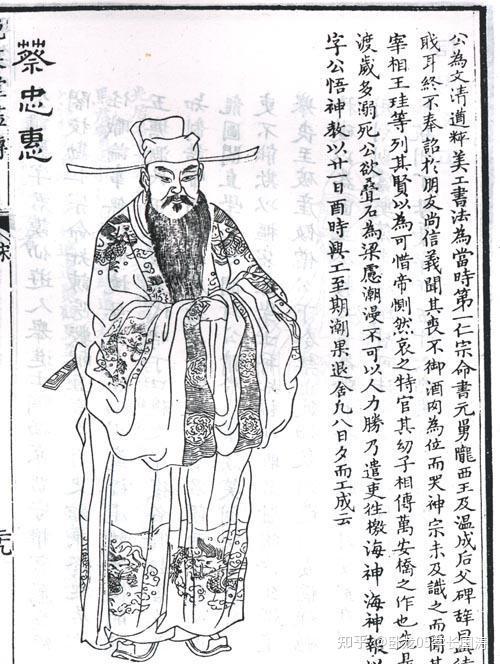 公為文清遒粹美工書法為當時第一仁宗命書元舅隴西王及温成后父碑辭曰待
戢耳終不奉詔於朋友尚信義聞其喪不御酒肉為位而哭神宗未及識之而聞其
宰相王珪等列其賢以為可惜帝惻然哀之特官其幼子相傳萬安橋之作也先是
渡歲多溺死公欲疊石為梁慮潮漫不可以人力勝乃遣吏往檄海神海神報以
字公悟神教以廿一日酉時興工至期潮果退舍凡八日夕而工成云
蔡忠惠
知乎